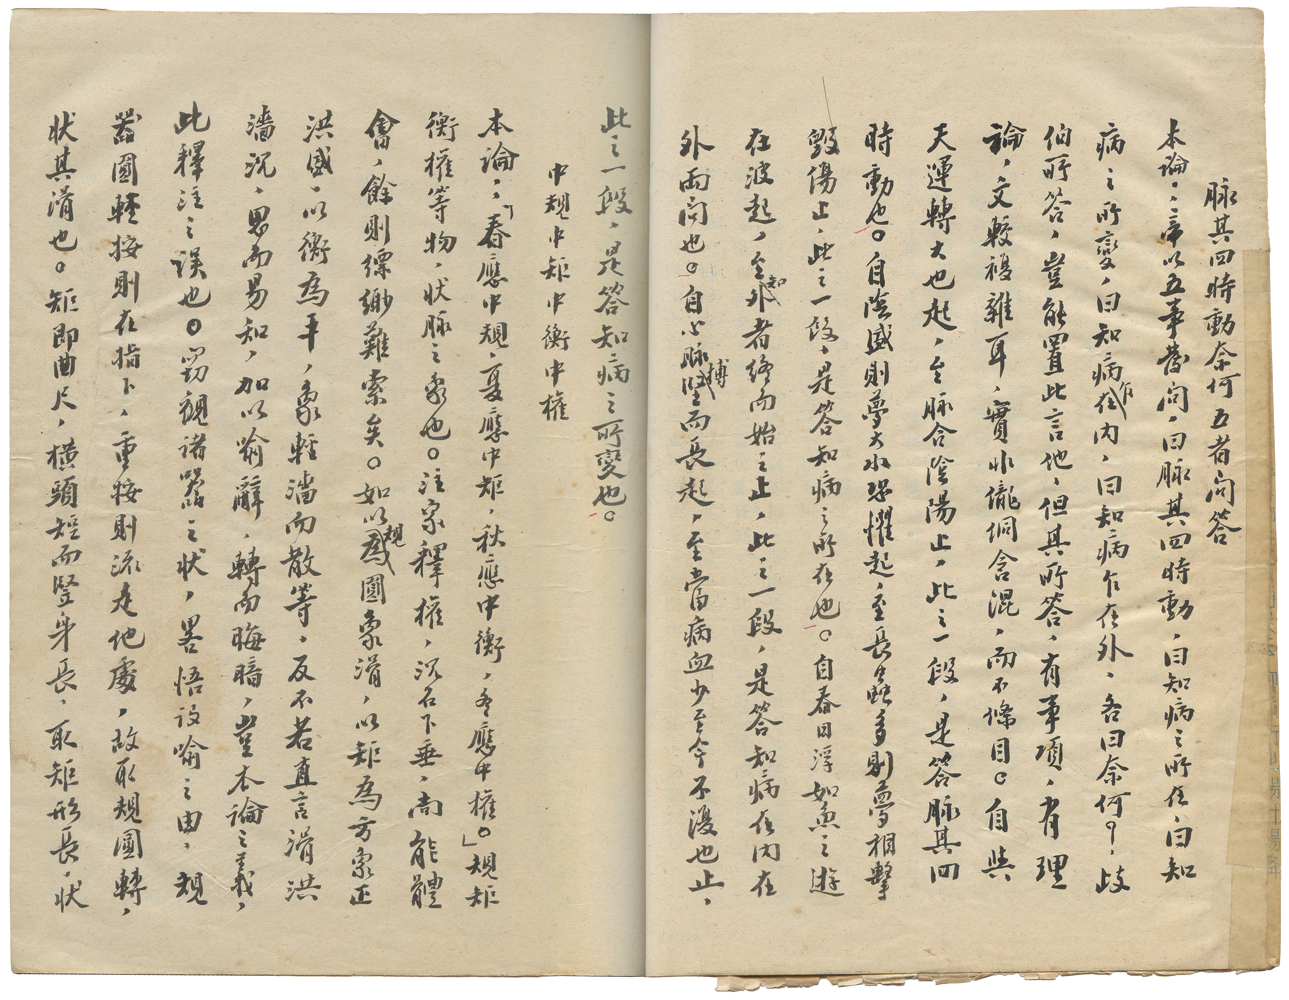 脉其四時動奈何五者问答
本論：帝以五事發问，曰脉其四時動，曰知病之所在，曰知
病之所變，曰知病乍在内，曰知病乍在外，各曰奈何？，歧
伯所答，豈能置此言他，但其所答，有事項，有理
論，文較複雜耳，實非儱侗含混，而不條目。自與
天運轉大也起，至脉合陰陽止，此之一段，是答脉其四
時動也。自陰盛則夢大水恐懼起，至長虫多則夢相擊
毁傷止，此之一段，是答知病之所在也。自春日浮如魚之遊
在波起，至知外者終而始之止，此之一段，是答知病在内在
外兩问也。自心脉搏堅而長起，至當病血少至今不復也止，
此之一段，是答知病之所變也。
中規中矩中衡中權
本論，「春應中規，夏應中矩，秋應中衡，冬應中權。」規矩
衡權等物，状脉之象也。注家釋權，沉石下垂，尚能體
會，餘則缥缈難索矣。如以規爲圓象滑，以矩爲方象正
洪盛，以衡爲平，象輕濇而散等，反不若直言滑洪
濇沉，思而易知，加以喻辭，轉而晦暗，豈本論之義，
此釋注之误也。罰觀诸器之状，畧悟设喻之由，規
器圓，輕按則在指下，重按則流走他處，故取規圓轉，
状其滑也。矩即曲尺，横頭短而竪身長，取矩形長，状